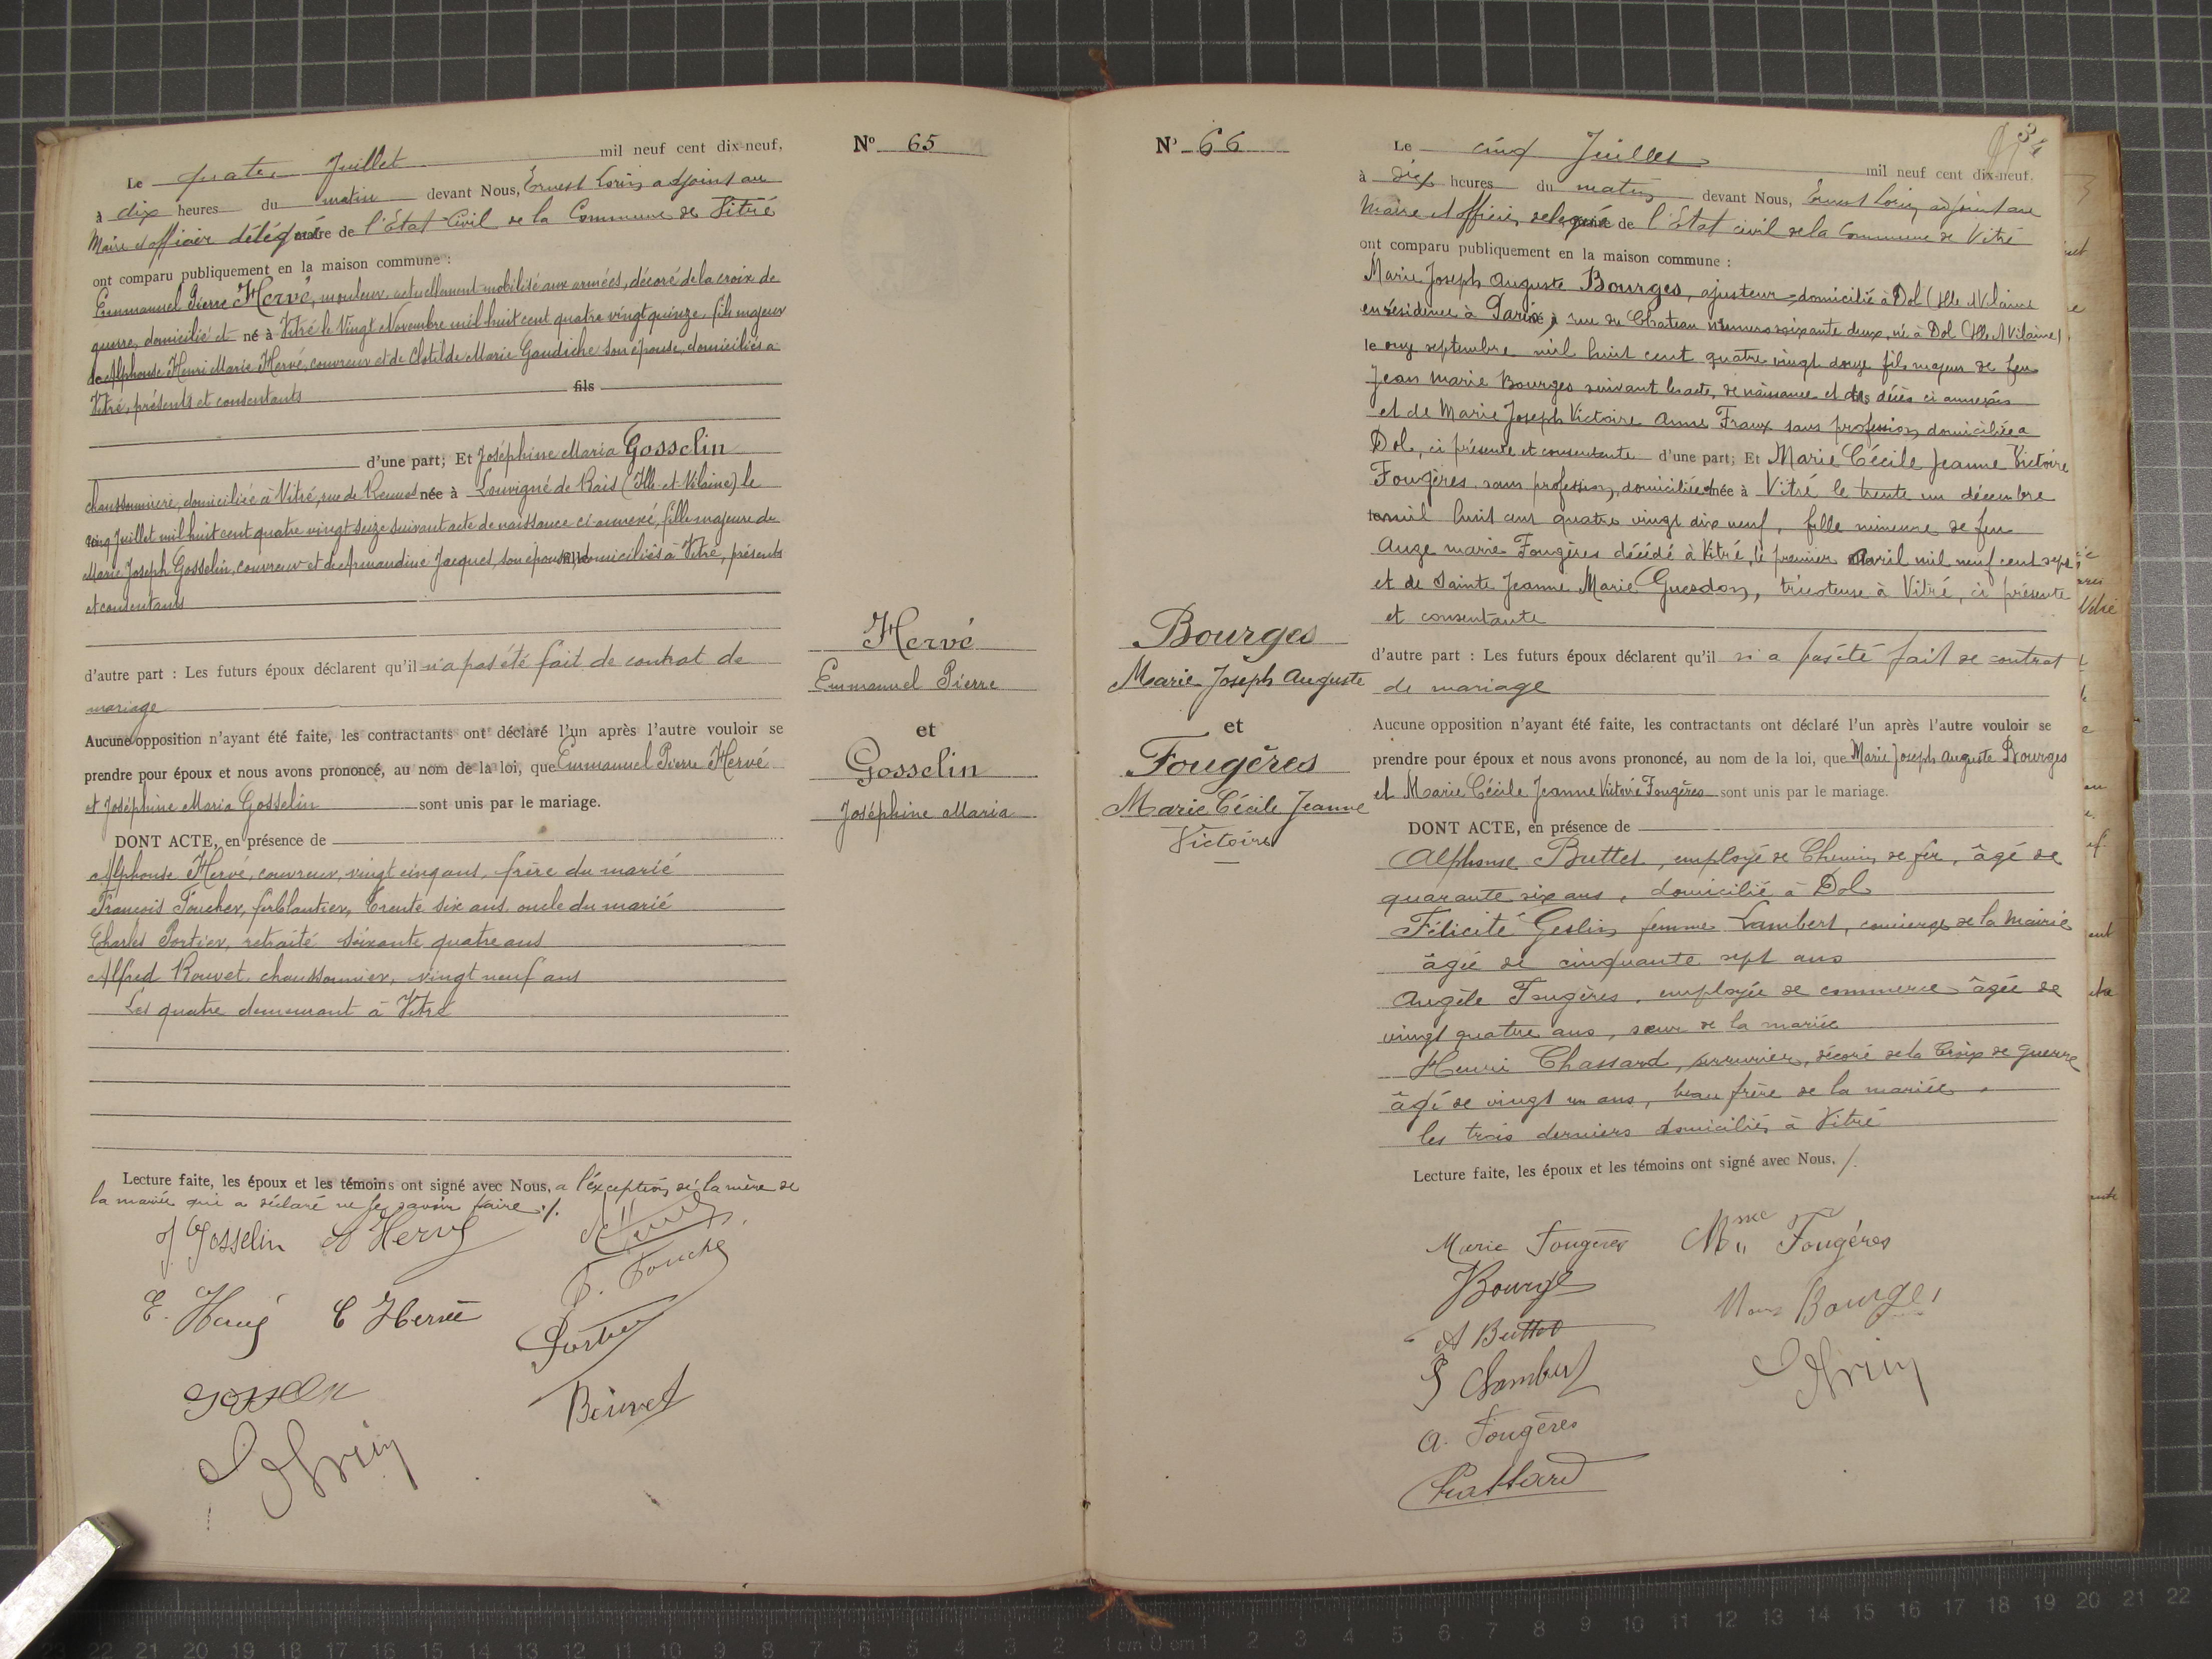 Le quatre Juillet mil neuf cent dix-neuf,
à dix heures du matin devant Nous, Ernest Lorin adjoint au
Maire et officier délégué maire de l'Etat Civil de la Commune de Vitré
ont comparu publiquement en la maison commune :
Emmanuel Pierre Hervé, mouleur, actuellement mobilisé aux armées, décoré de la croix de
guerre, domicilié et né à Vitré le Vingt Novembre mil huit cent quatre vingt quinze, fils majeur
de Alphonse Henri Marie Hervé, couvreur et de Clotilde Marie Gaudiche son épouse, domiciliés à
Vitré, présents et consentants fils
d'une part; Et Joséphine Maria Gosselin
chaussonnière, domiciliée à Vitré, rue de Rennes née à Louvigné de Bais (Ille-et-Vilaine) le
cinq Juillet mil huit cent quatre vingt seize suivant acte de naissance ci-annexé, fille majeure de
Marie Joseph Gosselin, couvreur et de Armandine Jacquet, son épouse, fille domiciliés à Vitré, présents
et consentants
d'autre part : Les futurs époux déclarent qu'il n'a pas été fait de contrat de
mariage
Aucune opposition n'ayant été faite, les contractants ont déclaré l'un après l'autre vouloir se
prendre pour époux et nous avons prononcé, au nom de la loi, que Emmanuel Pierre Hervé
et Joséphine Maria Gosselin sont unis par le mariage.
DONT ACTE, en présence de
Alphonse Hervé, couvreur, vingt cinq ans, frère du marié
François Foucher, ferblantier, trente six ans oncle du marié
Charles Portier, retraité soixante quatre ans
Alfred Rouvet, chaussonnier, vingt neuf ans
Les quatre demeurant à Vitré
Lecture faite, les époux et les témoins ont signé avec Nous, a l'exception de la mère de
la mariée qui a déclaré ne le savoir faire ./.
J Gosselin A Hervé
F. Fouché
E. Hervé C Hervé
Portier
Gosselin
Lorin
Nº 65
Hervé
Emmanuel Pierre
et
Gosselin
Joséphine Maria
Nº 66
Bourges
Marie Joseph Auguste
et
Fougères
Marie Cécile Jeanne
Victoire
34
Le cinq Juillet mil neuf cent dix-neuf,
à dix heures du matin devant Nous, Ernest Lorin adjoint au
Maire et officier délégué maire de l'Etat civil de la Commune de Vitré
ont comparu publiquement en la maison commune :
Marie Joseph Auguste Bourges, ajusteur, domicilié à Dol (Ille et Vilaine
en résidence à Paris, rue du Chateau numero soixante deux, né à Dol (Ille et Vilaine)
le onze septembre mil huit cent quatre vingt douze fils majeur de feu
Jean Marie Bourges suivant les actes de naissance et de décès ci annexés
et de Marie Joseph Victoire Anne Fraux sans profession domiciliée à
Dol, ci présente et consentante d'une part; Et Marie Cécile Jeanne Victoire
Fougères sans profession, domiciliée et née à Vitré le trente un décembre
mil huit cent quatre vingt dix neuf, fille mineure de feu
Ange Marie Fougères décédé à Vitré, le premier Avril mil neuf cent sept
et de Sainte Jeanne Marie Guesdon, tricoteuse à Vitré, ci présente
et consentante
d'autre part : Les futurs époux déclarent qu'il n'a pas été fait de contrat
de mariage
Aucune opposition n'ayant été faite, les contractants ont déclaré l'un après l'autre vouloir se
prendre pour époux et nous avons prononcé, au nom de la loi, que Marie Joseph Auguste Bourges
et Marie Cécile Jeanne Victoire Fougères sont unis par le mariage.
DONT ACTE, en présence de
Alphonse Buttet, employé de Chemin de fer, âgé de
quarante six ans, domicilié à Dol
Félicité Geslin femme Lambert, concierge de la Mairie
âgée de cinquante sept ans
Angèle Fougères, employée de commerce âgée de
vingt quatre ans, sœur de la mariée
Henri Chassard, serrurier, décoré de la Croix de guerre
âgé de vingt un ans, beau frère de la mariée
les trois derniers domiciliés à Vitré
Lecture faite, les époux et les témoins ont signé avec Nous, /.
Marie Fougères Fougères
Bourges
Bourges
A Buttet
Lambert
Lorin
A. Fougères
Chassard
23 22 21 20 19 18 17 16 15 14 13 12 11 10 9 8 7 6 5 4 3 2 1 cm 0 cm 1 2 3 4 5 6 7 8 9 10 11 12 13 14 15 16 17 18 19 20 21 22